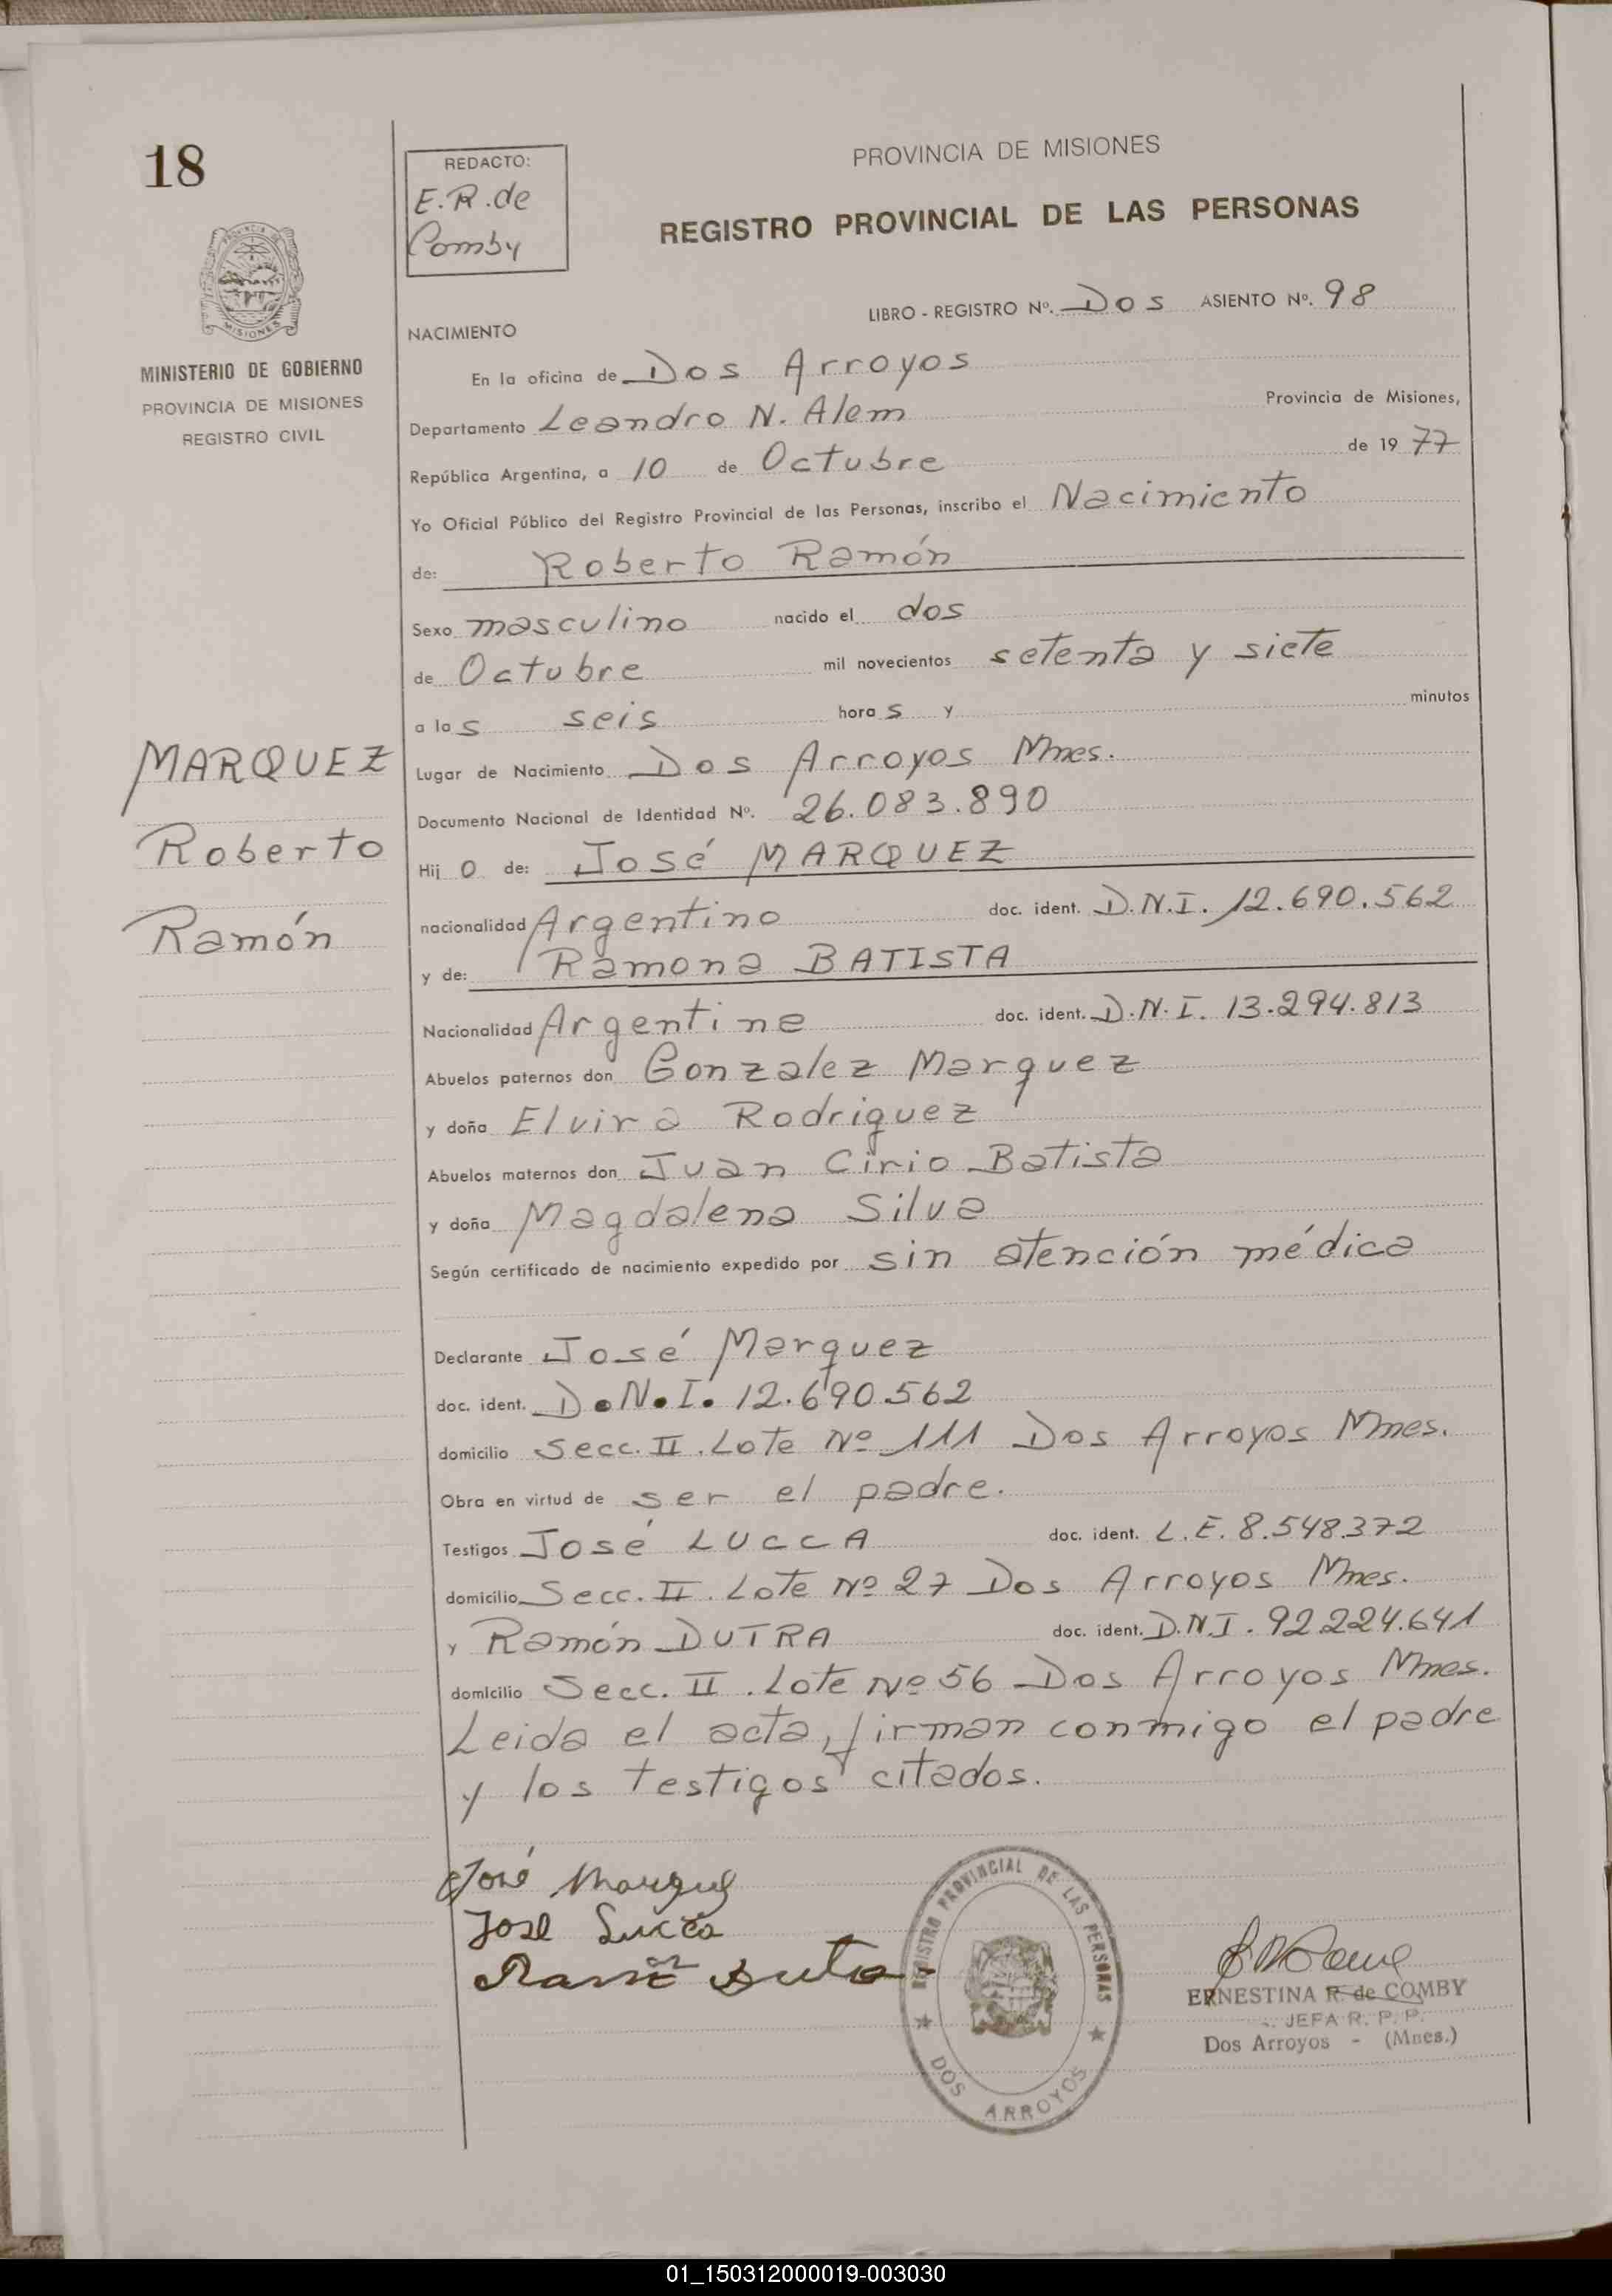 18
REDACTO:
E.R. de
Comby
PROVINCIA DE MISIONES
REGISTRO PROVINCIAL DE LAS PERSONAS
LIBRO - REGISTRO Nº. Dos ASIENTO Nº. 98
PROVINCIA DE
MISIONES
MINISTERIO DE GOBIERNO
PROVINCIA DE MISIONES
REGISTRO CIVIL
NACIMIENTO
En la oficina de Dos Arroyos
Departamento Leandro N. Alem Provincia de Misiones,
República Argentina, a 10 de Octubre de 1977
Yo Oficial Público del Registro Provincial de las Personas, inscribo el Nacimiento
de: Roberto Ramón
Sexo masculino nacido el dos
de Octubre mil novecientos setenta y siete
a las seis horas y minutos
MARQUEZ
Roberto
Ramón
Lugar de Nacimiento Dos Arroyos Mnes.
Documento Nacional de Identidad Nº. 26.083.890
Hijo de: José MARQUEZ
nacionalidad Argentino doc. ident. D.N.I. 12.690.562
y de: Ramona BATISTA
Nacionalidad Argentine doc. ident. D.N.I. 13.294.813
Abuelos paternos don Gonzalez Marquez
y doña Elvira Rodriguez
Abuelos maternos don Juan Cirio Batista
y doña Magdalena Silva
Según certificado de nacimiento expedido por sin atención médica
Declarante José Marquez
doc. ident. D.N.I. 12.690.562
domicilio Secc. II. Lote Nº 111 Dos Arroyos Mnes.
Obra en virtud de ser el padre.
Testigos José LUCCA doc. ident. L.E. 8.548.372
domicilio Secc. II. Lote Nº 27 Dos Arroyos Mnes.
y Ramón DUTRA doc. ident. D.N.I. 92.224.641
domicilio Secc. II. Lote Nº 56 Dos Arroyos Mnes.
Leida el acta, firman conmigo el padre
y los testigos citados.
José Marquez
José Lucca
Ramón Dutra
REGISTRO PROVINCIAL DE LAS PERSONAS
DOS ARROYOS
ERNESTINA R. de COMBY
JEFA R. P. P.
Dos Arroyos - (Mnes.)
01_150312000019-003030